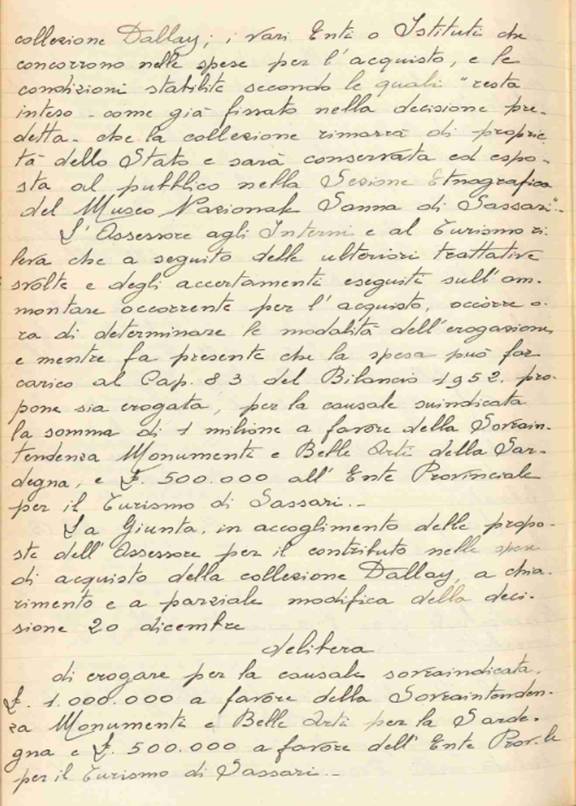 collezione Dallay; i vari Enti o Istituti che
concorrono nelle spese per l'acquisto, e le
condizioni stabilite secondo le quali "resta
inteso - come già fissato nella decisione pre-
detta - che la collezione rimarrà di proprie-
tà dello Stato e sarà conservata ed espo-
sta al pubblico nella Sezione Etnografica
del Museo Nazionale Sanna di Sassari".-
L'Assessore agli Interni e al Turismo ri-
leva che a seguito delle ulteriori trattative
svolte e degli accertamenti eseguiti sull'am-
montare occorrente per l'acquisto, occorre o-
ra di determinare le modalità dell'erogazione,
e mentre fa presente che la spesa può far
carico al Cap. 83 del Bilancio 1952, pro-
pone sia erogata, per la causale suindicata
la somma di 1 milione a favore della Sovrain-
tendenza Monumenti e Belle Arti della Sar-
degna, e £. 500.000 all'Ente Provinciale
per il Turismo di Sassari.-
La Giunta, in accoglimento delle propo-
ste dell'Assessore per il contributo nelle spese
di acquisto della collezione Dallay, a chia-
rimento e a parziale modifica della deci-
sione 20 dicembre
delibera
di erogare per la causale sovraindicata,
£. 1.000.000 a favore della Sovraintenden-
za Monumenti e Belle Arti per la Sarde-
gna e £. 500.000 a favore dell'Ente Prov.le
per il Turismo di Sassari.-